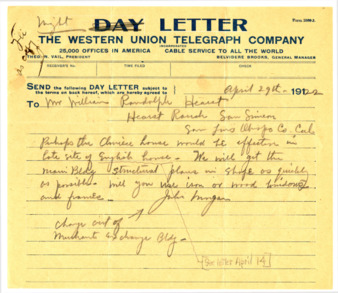 Night
File
copy
DAY LETTER
Form 2589-A
THE WESTERN UNION TELEGRAPH COMPANY
INCORPORATED
25,000 OFFICES IN AMERICA CABLE SERVICE TO ALL THE WORLD
THEO. N. VAIL, PRESIDENT BELVIDERE BROOKS, GENERAL MANAGER
RECEIVER'S NO. TIME FILED CHECK
SEND the following DAY LETTER subject to
the terms on back hereof, which are hereby agreed to
April 29th - 1922
To Mr William Randolph Hearst
Hearst Ranch San Simeon
San Luis Obispo Co. Cal
Perhaps the house would be effective in
late site of English house. We will get the
main Bldg structural plans in shape as quickly
as possible. Will you use iron or wood windows
and frames.
Julia Morgan
Charge acct of
Merchants Exchange Bldg -
[See letter April 14]